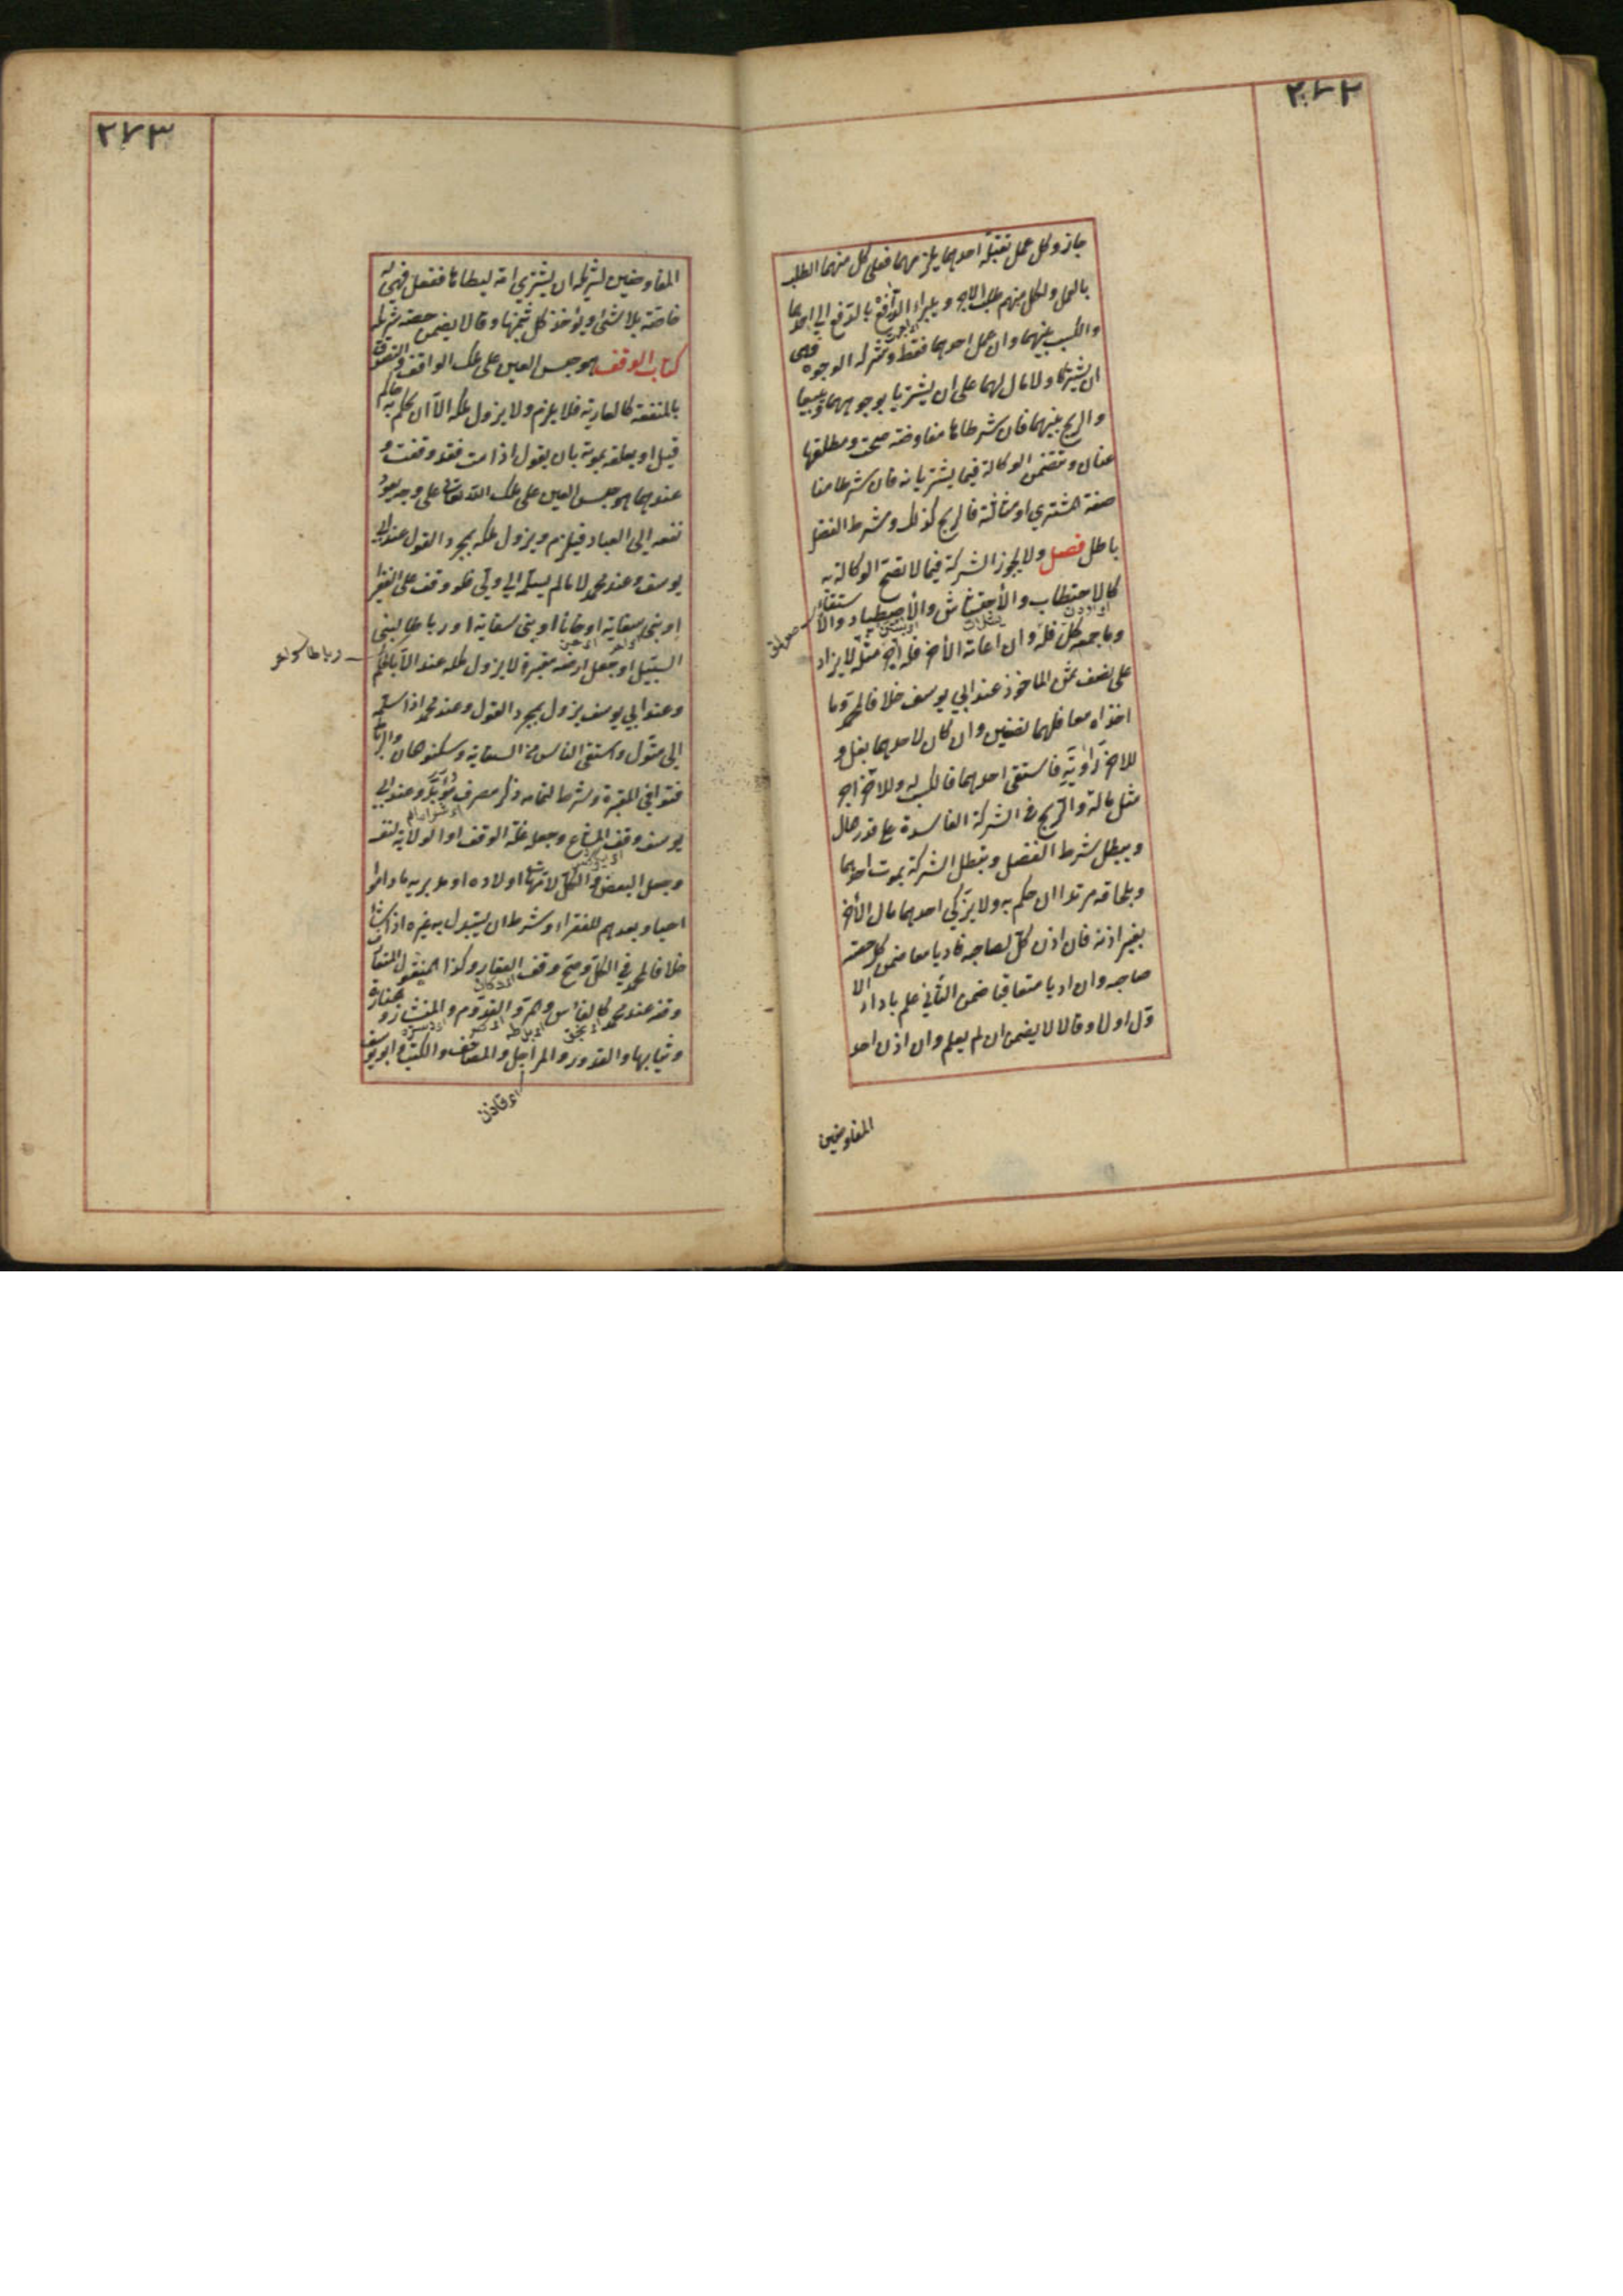 ٢٧٢
جاز وكل عمل تقبله احدهما يلزمهما فعلى كل منهما الطلب
بالعمل ولكل منهم طلب الاجر ويبراء الدافع بالدفع الى احدهما
والكسب بينهما وان عمل احدهما فقط وشركة الوجوه وهى
ان يشتركا ولا مال لهما على ان يشتريا بوجوههما ويبيعا
والربح بينهما فان شرطاها مفاوضة صحت ومطلقها
عنان وتتضمن الوكالة فيما يشتريانه فان شرطا منا
صفة المشترى او مثالثة فالربح كذلك وشرط الفضل
باطل فصل ولا يجوز الشركة فيما لا تصح الوكالة به
كالاحتطاب والاحتشاش والاصطياد والاستقاء
وما جمعه كل فله وان اعانه الاخر فله اجر مثله لا يزاد
على نصف ثمن الماخوذ عند ابي يوسف خلافا لمحمد وما
اخذاه معا فلهما نصفين وان كان لاحدهما بغل و
للاخر راوية فاستقى احدهما فالكسب له وللاخر اجر
مثل ماله والربح فى الشركة الفاسدة على قدر المال
ويبطل شرط الفضل وتبطل الشركة بموت احدهما
وبلحاقه مرتدا ان حكم به ولا يزكي احدهما مال الاخر
بغير اذنه فان اذن كل لصاحبه فاديا معا ضمن كل حصة
صاحبه وان اديا متعاقبا ضمن الثاني علم باداء الا
ول اولا وقالا لا يضمن ان لم يعلم وان اذن احد
المفاوضين
٢٧٣
المفاوضين لشريكه ان يشترى امة ليطاها ففعل فهى له
خاصة بلا شئ ويؤخذ كل بثمنها وقالا يضمن حصة شريكه
كتاب الوقف هو حبس العين على ملك الواقف والتصدق
بالمنفعة كالعارية فلا يلزم ولا يزول ملكه الا ان يحكم به حاكم
قيل او يعلقه بموته بان يقول اذا مت فقد وقفت و
عندهما هو حبس العين على ملك الله تعالى على وجه يعود
نفعه الى العباد فيلزم ويزول ملكه بمجرد القول عند ابي
يوسف وعند محمد لا ما لم يسلمه الى ولي فلو وقف على الفقراء
او بنى سقاية او خانا او بنى سقاية او رباطا لبني
السبيل او جعل ارضه مقبرة لا يزول ملكه عنه الا بالحكم
وعند ابي يوسف يزول بمجرد القول وعند محمد اذا سلمه
الى متول واستقى الناس من السقاية وسكنوا الخان والرباط
ودفنوا في المقبرة وشرط لتمامه ذكر مصرف مؤبد وعند ابي
يوسف وقف المشاع وجعل غلة الوقف او الولاية لنفسه
وجعل البعض والكل لامهات اولاده او مدبريه ما داموا
احياء وبعدهم للفقراء وشرط ان يستبدل به غيره اذا شاء
خلافا لمحمد في الكل وصح وقف العقار وكذا المنقول المتعارف
وقفه عند محمد كالفاس والمر والقدوم والمنشار والجنازة
وثيابها والقدور والمراجل والمصاحف والكتب وابو يوسف